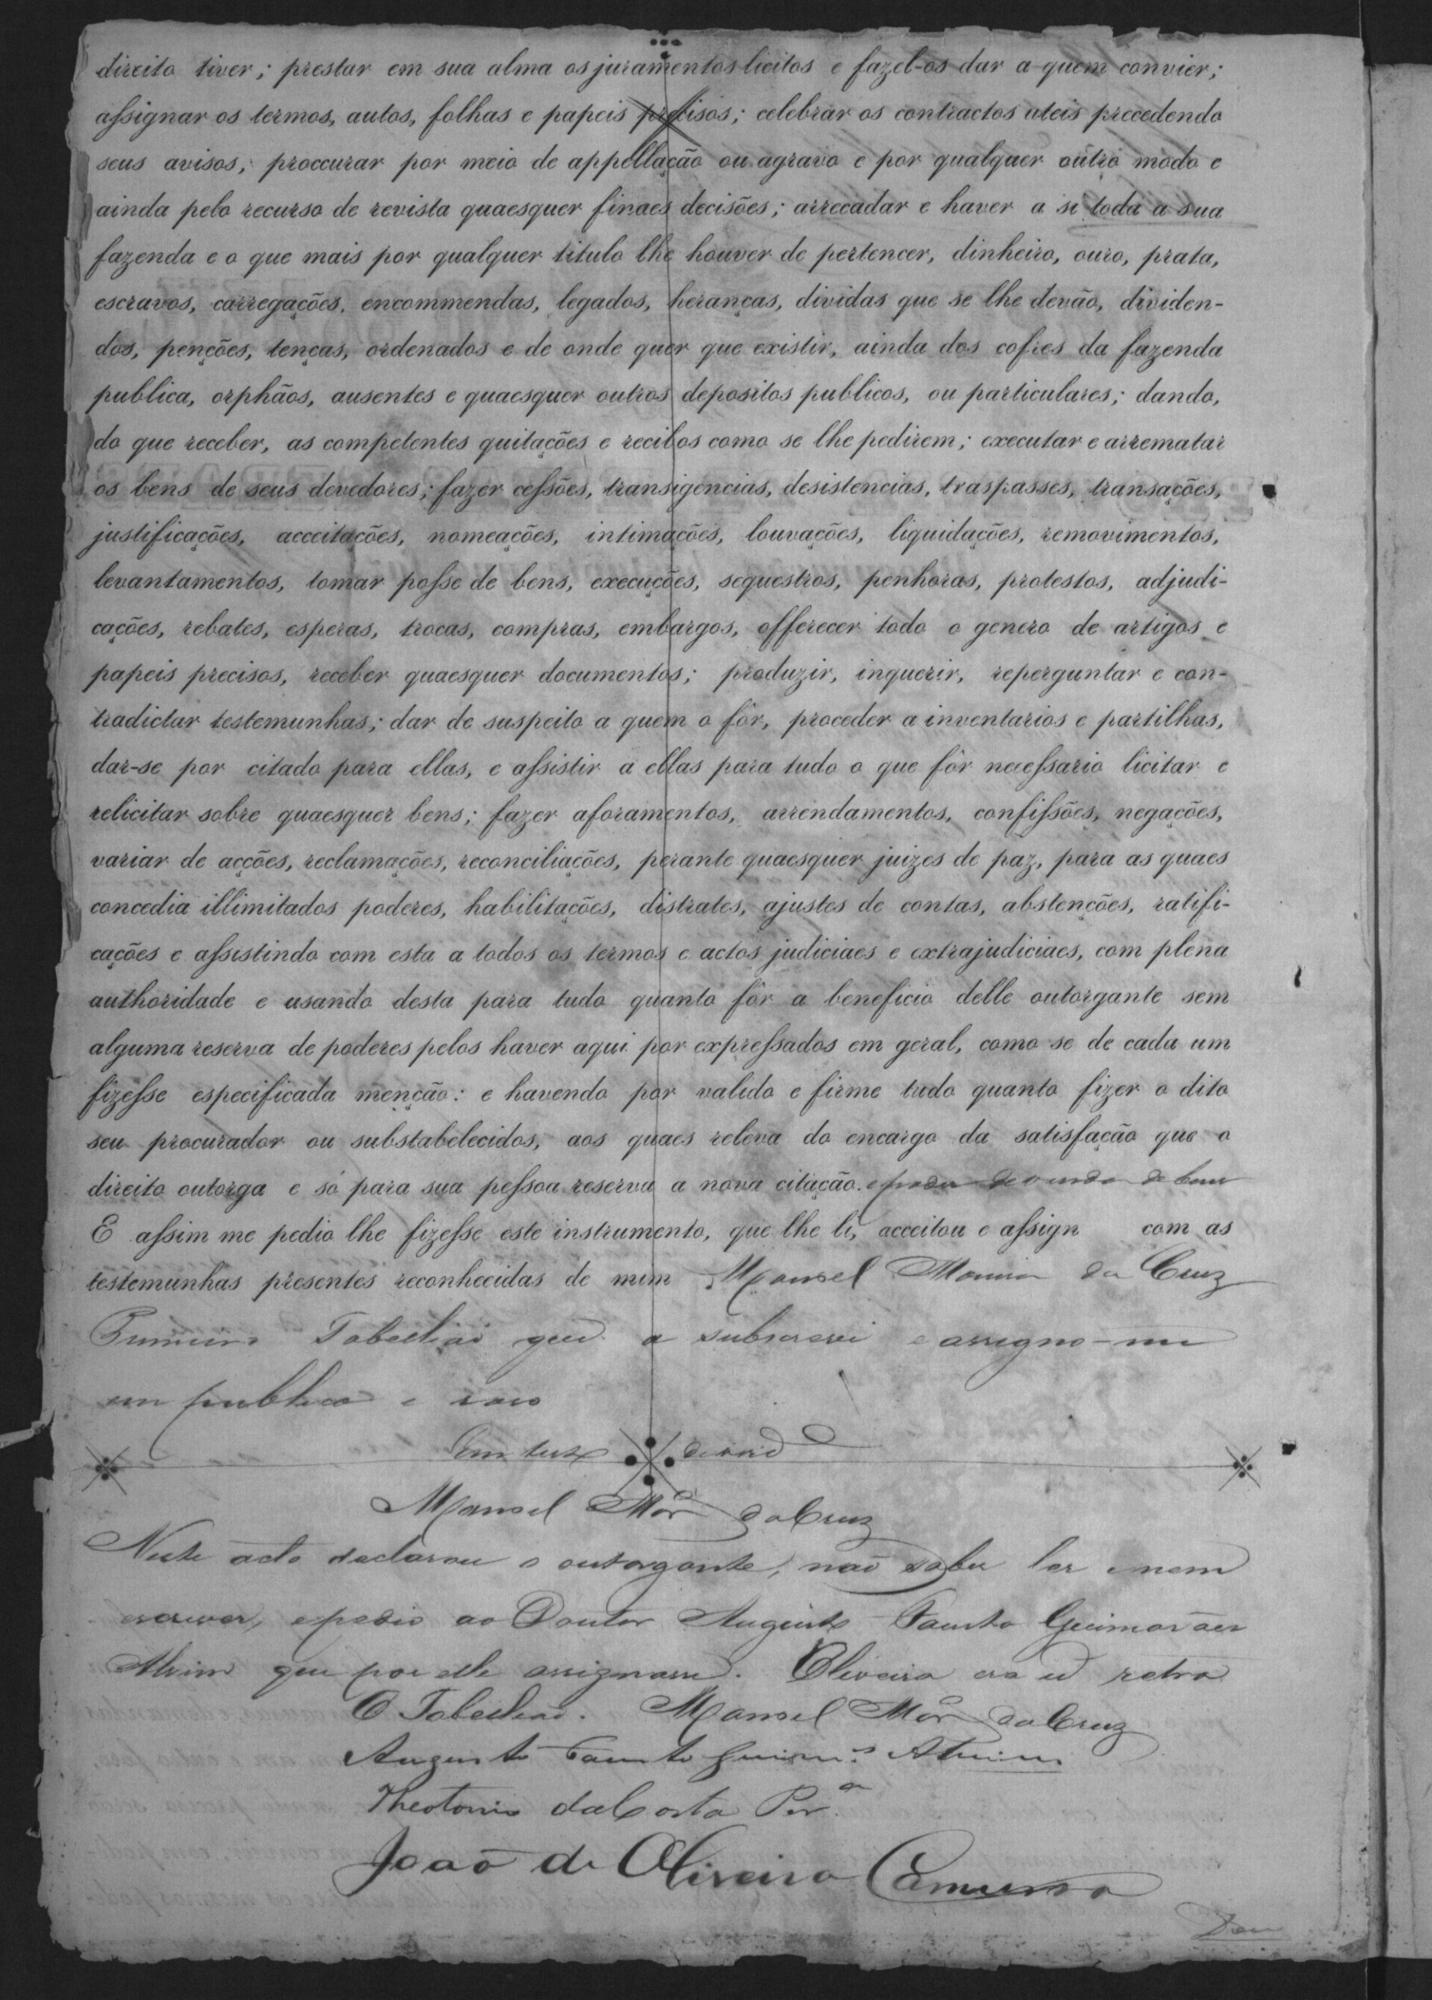 direito tiver; prestar em sua alma os juramentos licitos e fazel-os dar a quem convier;
assignar os termos, autos, folhas e papeis precisos; celebrar os contractos uteis precedendo
seus avisos; proccurar por meio de appellação ou agravo e por qualquer outro modo e
ainda pelo recurso de revista quaesquer finaes decisões; arrecadar e haver a si toda a sua
fazenda e o que mais por qualquer titulo lhe houver de pertencer, dinheiro, ouro, prata,
escravos, carregações, encommendas, legados, heranças, dividas que se lhe devão, dividen-
dos, penções, tenças, ordenados e de onde quer que existir, ainda dos cofres da fazenda
publica, orphãos, ausentes e quaesquer outros depositos publicos, ou particulares; dando,
do que receber, as competentes quitações e recibos como se lhe pedirem; executar e arrematar
os bens de seus devedores; fazer cessões, transigencias, desistencias, traspasses, transações,
justificações, acceitações, nomeações, intimações, louvações, liquidações, removimentos,
levantamentos, tomar posse de bens, execuções, sequestros, penhoras, protestos, adjudi-
cações, rebates, esperas, trocas, compras, embargos, offerecer todo o genero de artigos e
papeis precisos, receber quaesquer documentos; produzir, inquerir, reperguntar e con-
tradictar testemunhas; dar de suspeito a quem o fôr, proceder a inventarios e partilhas,
dar-se por citado para ellas, e assistir a ellas para tudo o que fôr necessario licitar e
relicitar sobre quaesquer bens; fazer aforamentos, arrendamentos, confissões, negações,
variar de acções, reclamações, reconciliações, perante quaesquer juizes de paz, para as quaes
concedia illimitados poderes, habilitações, distrates, ajustes de contas, abstenções, ratifi-
cações e assistindo com esta a todos os termos e actos judiciaes e extrajudiciaes, com plena
authoridade e usando desta para tudo quanto fôr a beneficio delle outorgante sem
alguma reserva de poderes pelos haver aqui por expressados em geral, como se de cada um
fizesse especificada menção: e havendo por valido e firme tudo quanto fizer o dito
seu procurador ou substabelecidos, aos quaes releva do encargo da satisfação que o
direito outorga e só para sua pessoa reserva a nova citação.
E assim me pedio lhe fizesse este instrumento, que lhe li, acceitou e assign com as
testemunhas presentes reconhecidas de mim Manoel Moreira da Cruz
Primeiro Tabellião que a subscrevi e assigno-me
em publico e raso
Em test de verd
Manoel Mor da Cruz
Neste acto declarou o outorgante, não saber ler e nem
escrever, e pedio ao Doutor Augusto Fausto Guimarães
Alvim que por elle assignasse. Oliveira era ut retro
O Tabellião. Manoel Mor da Cruz
Augusto Fausto Guim.s Alvim
Theotonio da Costa Per.a
João de Oliveira Camurra